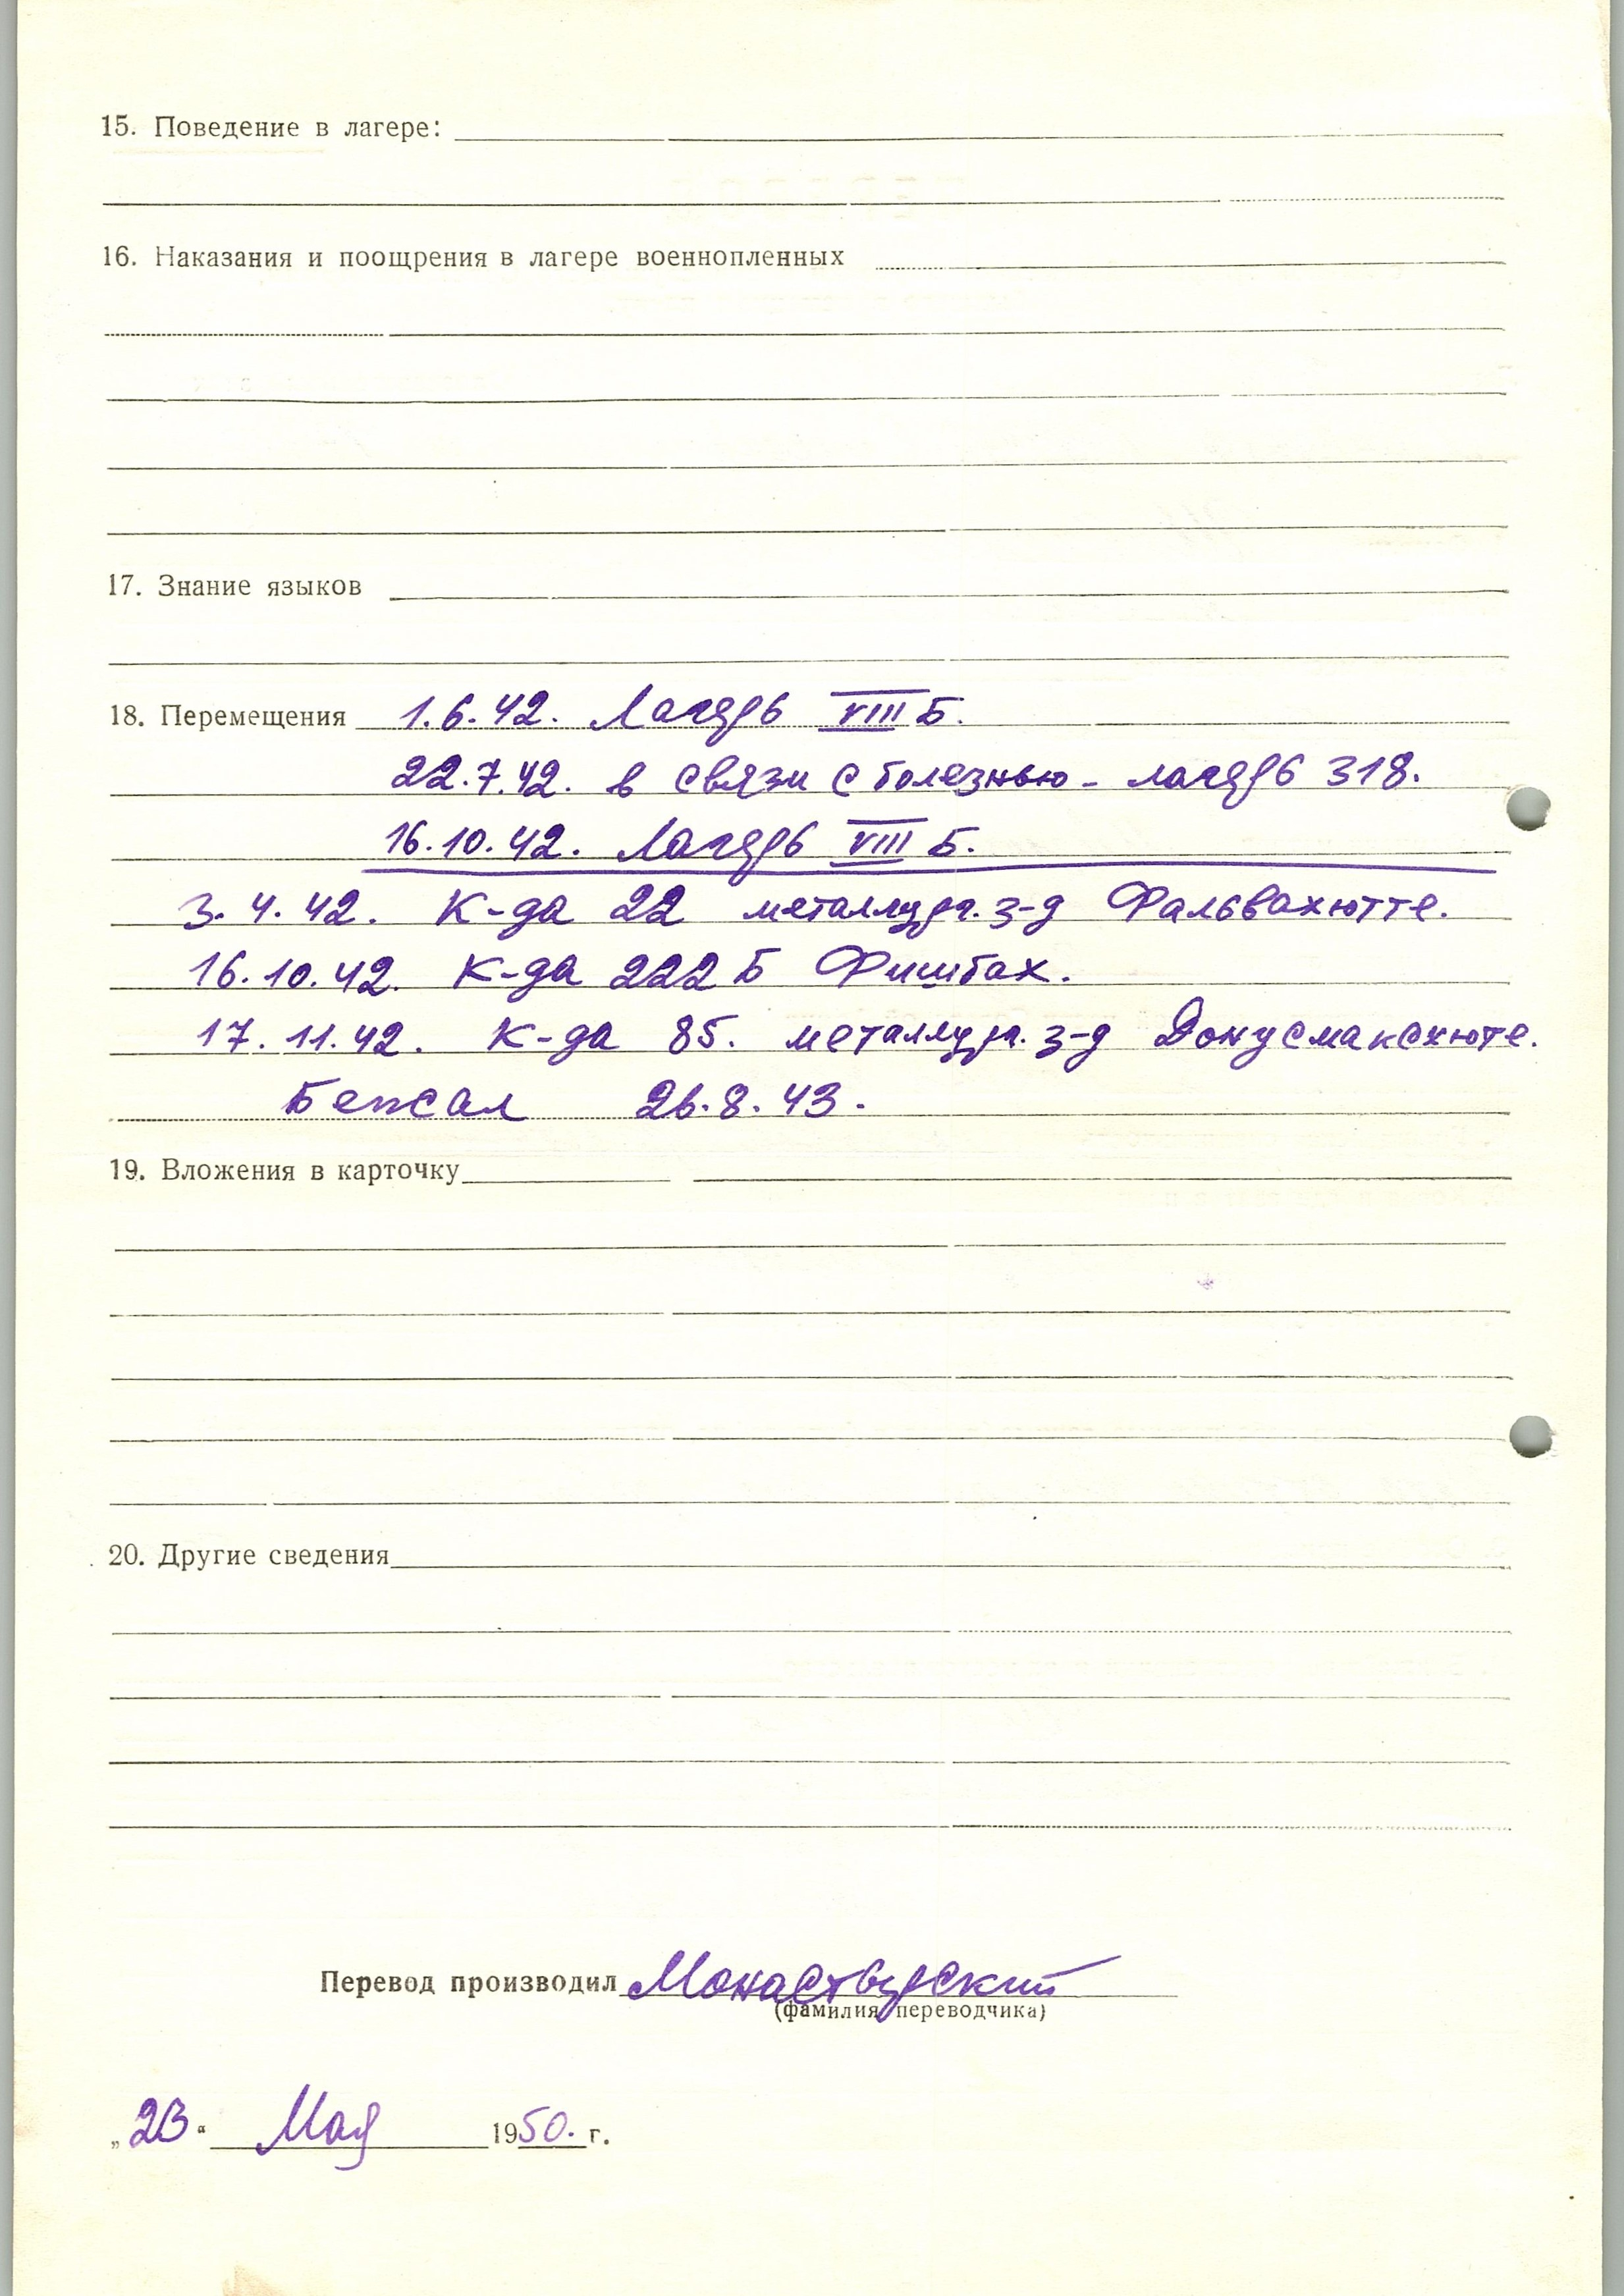 15. Поведение в лагере:
16. Наказания и поощрения в лагере военнопленных
17. Знание языков
18. Перемещения 1.6.42. Лагерь VIII Б.
22.7.42. в связи с болезнью - лагерь 318.
16.10.42. Лагерь VIII Б.
3.4.42. К-да 22 металлург. з-д Фальвахютте.
16.10.42. К-да 222 Б Фишбах.
17.11.42. К-да 85. металлург. з-д Донусмаксхюте.
Бежал 26.8.43.
19. Вложения в карточку
20. Другие сведения
Перевод производил Монастырский
(фамилия переводчика)
„23“ Мая 1950. г.